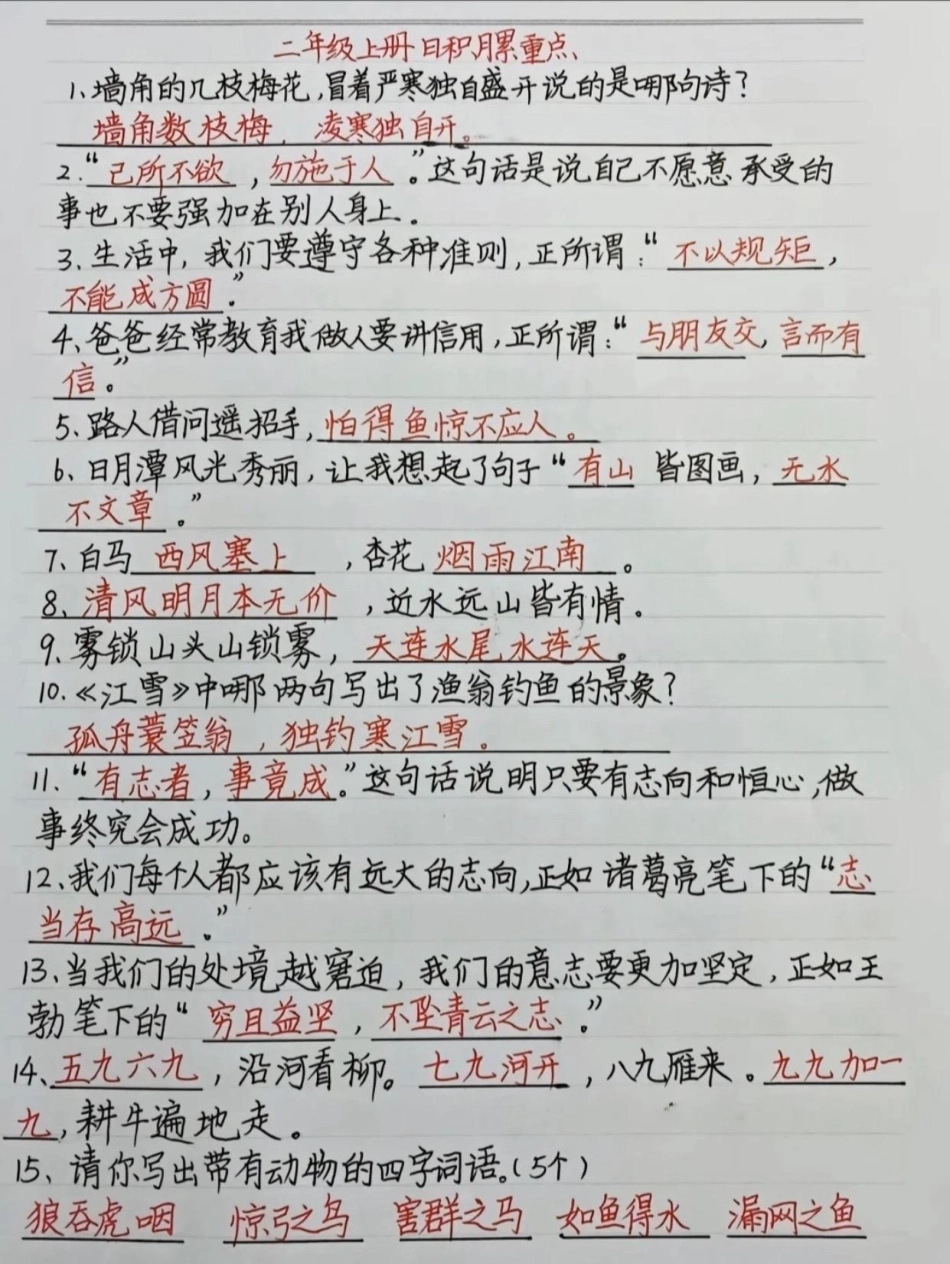 二年级上册日积月累重点
1、墙角的几枝梅花,冒着严寒独自盛开说的是哪句诗?
墙角数枝梅,凌寒独自开。
2.“己所不欲,勿施于人”。这句话是说自己不愿意承受的
事也不要强加在别人身上.
3、生活中,我们要遵守各种准则,正所谓:“不以规矩,
不能成方圆。”
4、爸爸经常教育我做人要讲信用,正所谓:“与朋友交,言而有
信。”
5、路人借问遥招手,怕得鱼惊不应人。
6、日月潭风光秀丽,让我想起了句子“有山皆图画,无水
不文章。”
7、白马西风塞上,杏花烟雨江南。
8、清风明月本无价,近水远山皆有情。
9、雾锁山头山锁雾,天连水尾水连天。
10.《江雪》中哪两句写出了渔翁钓鱼的景象?
孤舟蓑笠翁,独钓寒江雪。
11.“有志者,事竟成。”这句话说明只要有志向和恒心,做
事终究会成功。
12、我们每个人都应该有远大的志向,正如诸葛亮笔下的“志
当存高远。”
13、当我们的处境越窘迫,我们的意志要更加坚定,正如王
勃笔下的“穷且益坚,不坠青云之志。”
14、五九六九,沿河看柳。七九河开,八九雁来。九九加一
九,耕牛遍地走。
15、请你写出带有动物的四字词语。(5个)
狼吞虎咽 惊弓之鸟 害群之马 如鱼得水 漏网之鱼